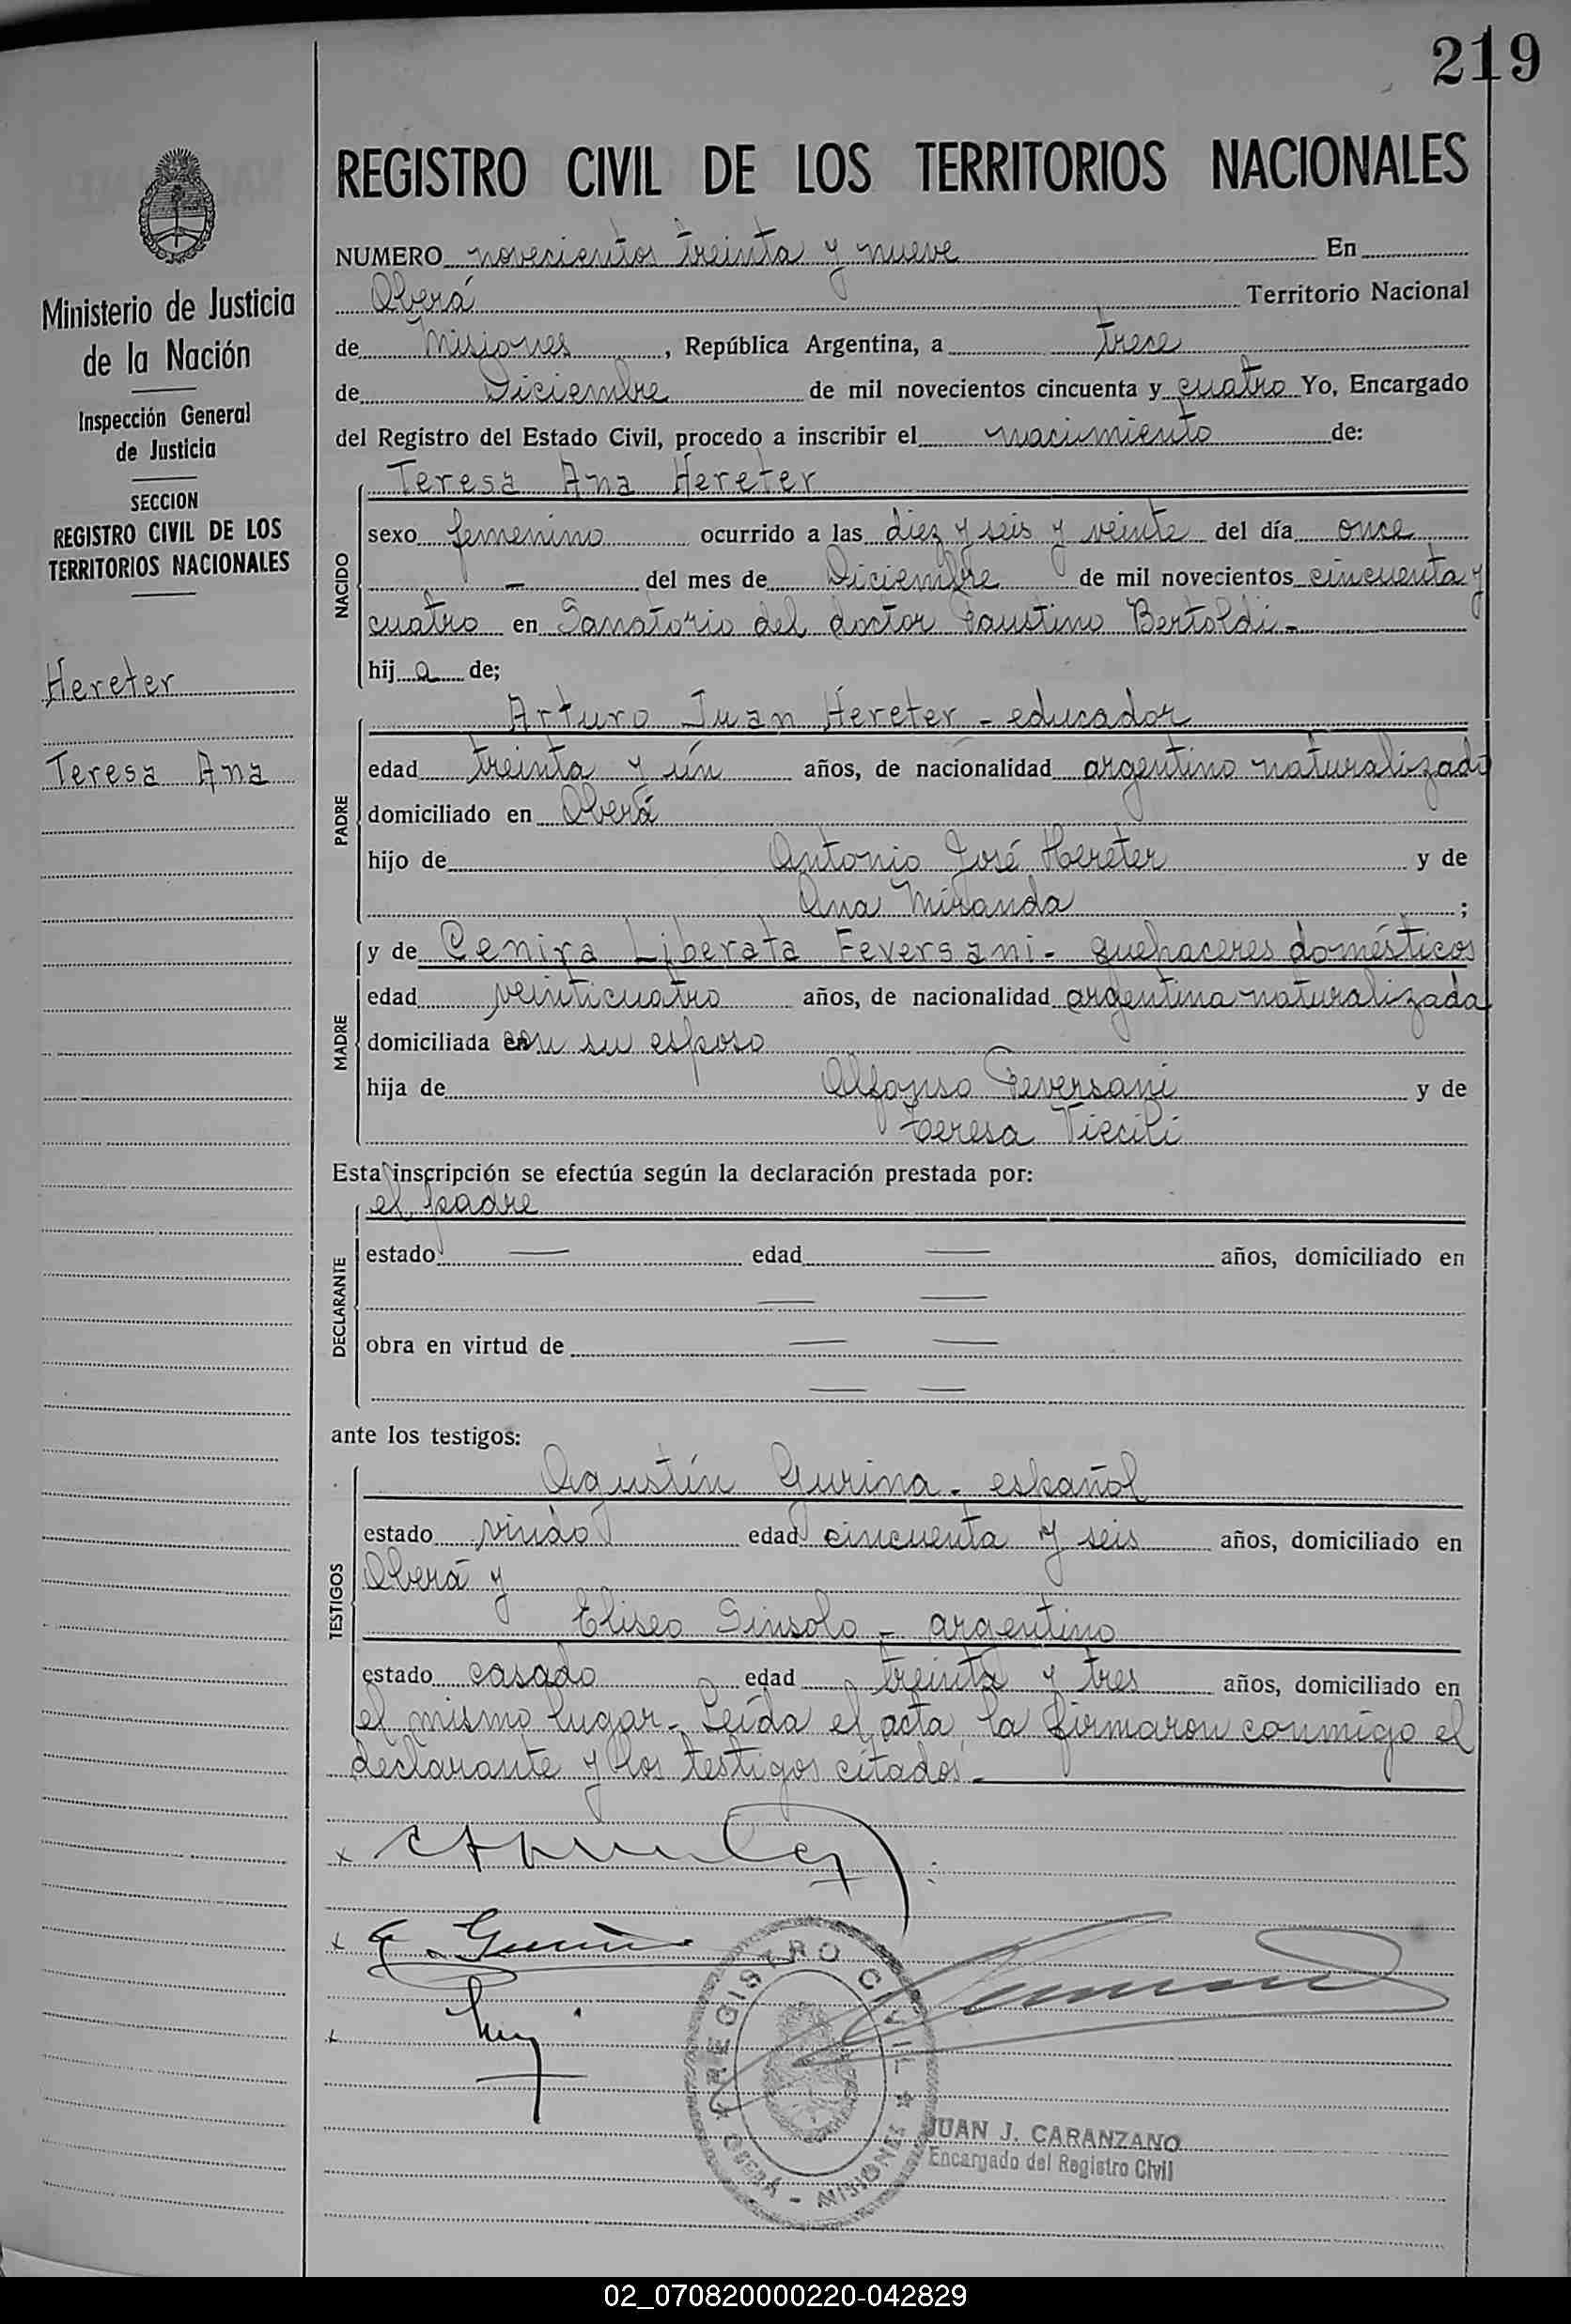 219
REGISTRO CIVIL DE LOS TERRITORIOS NACIONALES
Ministerio de Justicia
de la Nación
Inspección General
de Justicia
SECCION
REGISTRO CIVIL DE LOS
TERRITORIOS NACIONALES
Hereter
Teresa Ana
NUMERO novecientos treinta y nueve En
Oberá Territorio Nacional
de Misiones, República Argentina, a trece
de Diciembre de mil novecientos cincuenta y cuatro Yo, Encargado
del Registro del Estado Civil, procedo a inscribir el nacimiento de:
NACIDO
Teresa Ana Hereter
sexo femenino ocurrido a las diez y seis y veinte del día once
- del mes de Diciembre de mil novecientos cincuenta y
cuatro en Sanatorio del doctor Faustino Bertoldi -
hij a de;
PADRE
Arturo Juan Hereter - educador
edad treinta y ún años, de nacionalidad argentino naturalizado
domiciliado en Oberá
hijo de Antonio José Hereter y de
Ana Miranda ;
MADRE
y de Cenira Liberata Feversani - quehaceres domésticos
edad veinticuatro años, de nacionalidad argentina naturalizada
domiciliada con su esposo
hija de Alfonso Feversani y de
Teresa Viecili
Esta inscripción se efectúa según la declaración prestada por:
DECLARANTE
el padre
estado — edad — años, domiciliado en
— —
obra en virtud de — —
— —
ante los testigos:
TESTIGOS
Agustín Gurina - español
estado viudo edad cincuenta y seis años, domiciliado en
Oberá y
Eliseo Sinsolo - argentino
estado casado edad treinta y tres años, domiciliado en
el mismo lugar - Leída el acta, la firmaron conmigo el
declarante y los testigos citados. -
REGISTRO CIVIL
OBERA - MISIONES
JUAN J. CARANZANO
Encargado del Registro Civil
02_070820000220-042829